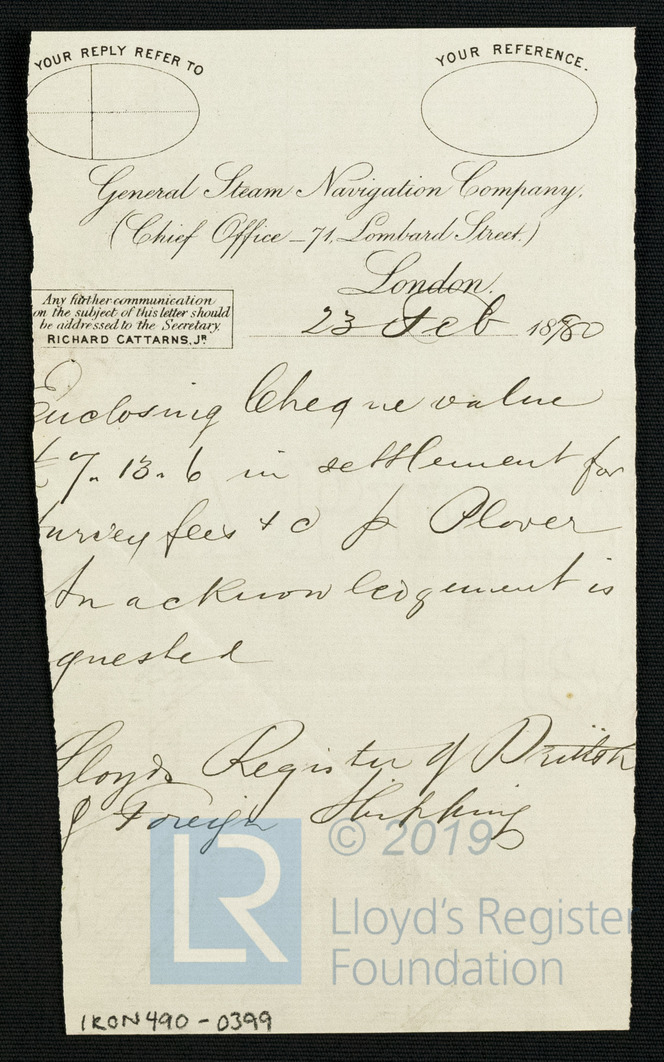 YOUR REPLY REFER TO
YOUR REFERENCE.
General Steam Navigation Company.
(Chief Office_71, Lombard Street.)
London.
Any further communication
on the subject of this letter should
be addressed to the Secretary.
RICHARD CATTARNS, Jr
23 Feb 1880
Enclosing Cheque value
£7.13.6 in settlement for
urvey fees &c p Plover
An acknowledgement is
quested
Lloyds Register of British
& Foreign Shipping
© 2019
LR
Lloyd's Register
Foundation
IRON490-0399